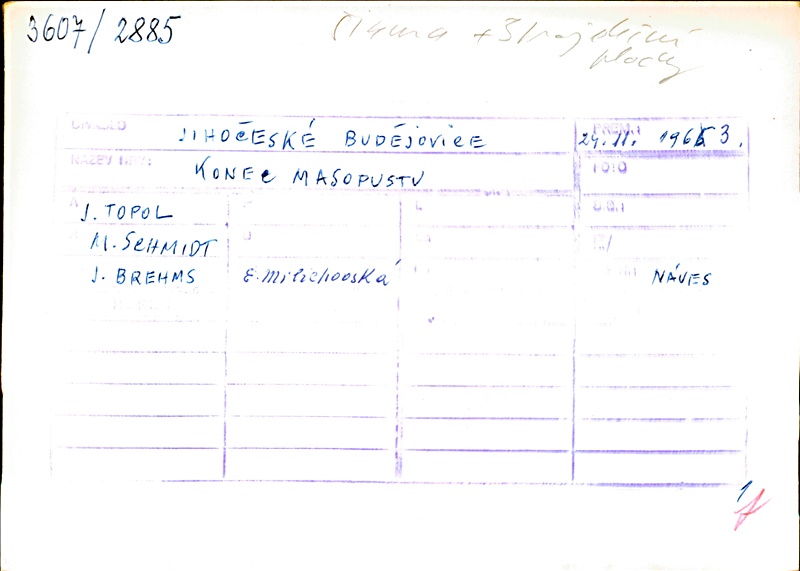 3607/2885
DIVADLO JIHOČESKÉ BUDĚJOVICE PREM. 24. 11. 1963.
NÁZEV HRY: KONEC MASOPUSTU FOTO
J. TOPOL
M. SCHMIDT
J. BREHMS E. Milichovská NÁVES
1